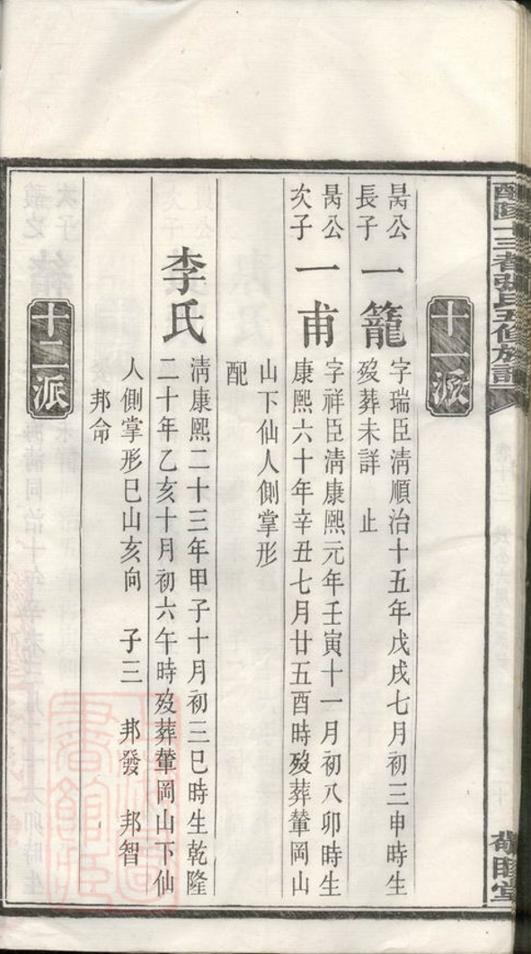 十一派
昺公長子 一籠
字瑞臣清順治十五年戊戌七月初三申時生
歿葬未詳 止
昺公次子 一甫
字祥臣清康熙元年壬寅十一月初八卯時生
康熙六十年辛丑七月廿五酉時歿葬輦岡山
山下仙人側掌形
配
李氏
清康熙二十三年甲子十月初三巳時生乾隆
二十年乙亥十月初六午時歿葬輦岡山下仙
人側掌形巳山亥向 子三 邦發 邦智
邦命
十二派